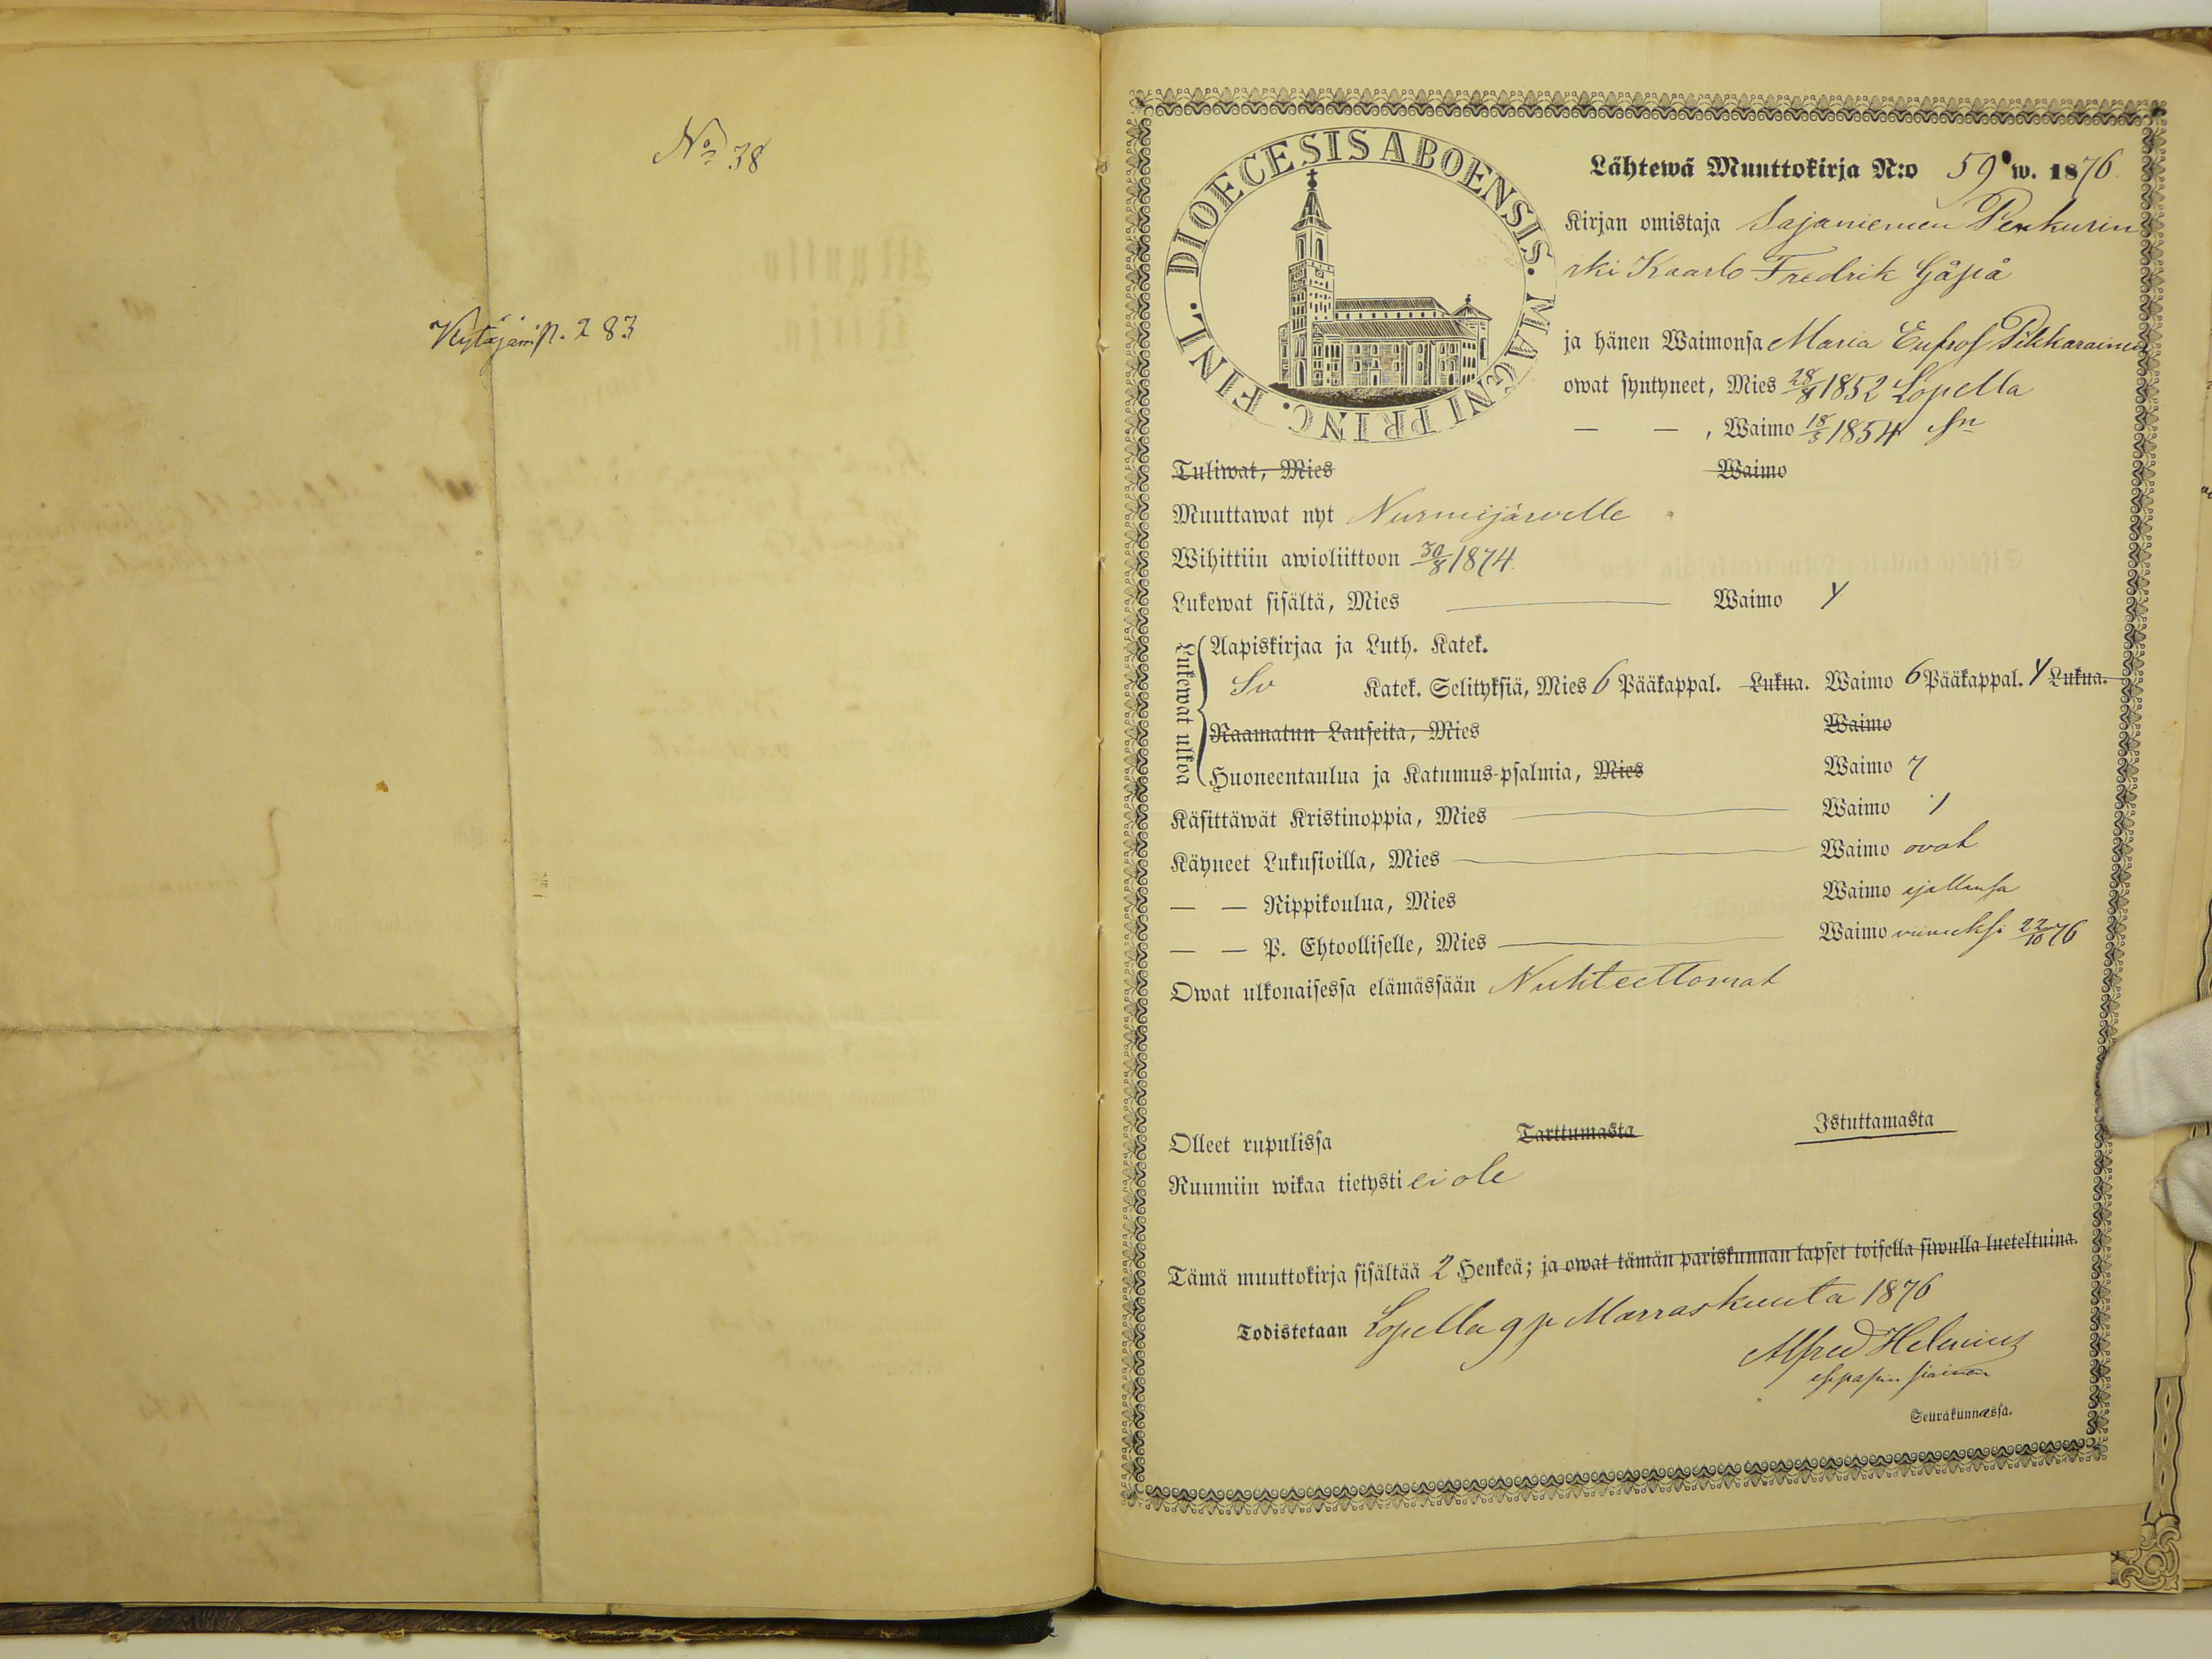 No 38
Kytäjä p. 283
DIOECESIS ABOENSIS. MAGNI PRINC. FINL.
Lähtewä Muuttokirja N:o 59 w. 1876.
Kirjan omistaja Sajaniemen Penkurin
rki Kaarlo Fredrik Gåpå
ja hänen Waimonsa Maria Eufros Pikkarainen
owat syntyneet, Mies 28/8 1852 Lopella
— — , Waimo 18/3 1854 sn
Tuliwat, Mies Waimo
Muuttawat nyt Nurmijärvelle
Wihittiin awioliittoon 30/8 1874.
Lukewat sisältä, Mies — Waimo y
Lukewat ulkoa
Aapiskirjaa ja Luth. Katek.
Sv Katek. Selityksiä, Mies 6 Pääkappal. Lukua. Waimo 6 Pääkappal. y Lukua.
Raamatun Lauseita, Mies Waimo
Huoneentaulua ja Katumus-psalmia, Mies Waimo 7
Käsittäwät Kristinoppia, Mies — Waimo 1
Käyneet Lukusioilla, Mies — Waimo ovat
— — Rippikoulua, Mies Waimo ajallansa
— — P. Ehtoolliselle, Mies — Waimo viimeksi 22/10 76
Owat ulkonaisessa elämässään Nuhteettomat
Olleet rupulissa Tarttumasta Istuttamasta
Ruumiin wikaa tietysti ei ole
Tämä muuttokirja sisältää 2 Henkeä; ja owat tämän pariskunnan lapset toisella siwulla lueteltuina.
Todistetaan Lopella 9 p Marraskuuta 1876
Alfred Helenius
Seurakunnassa.